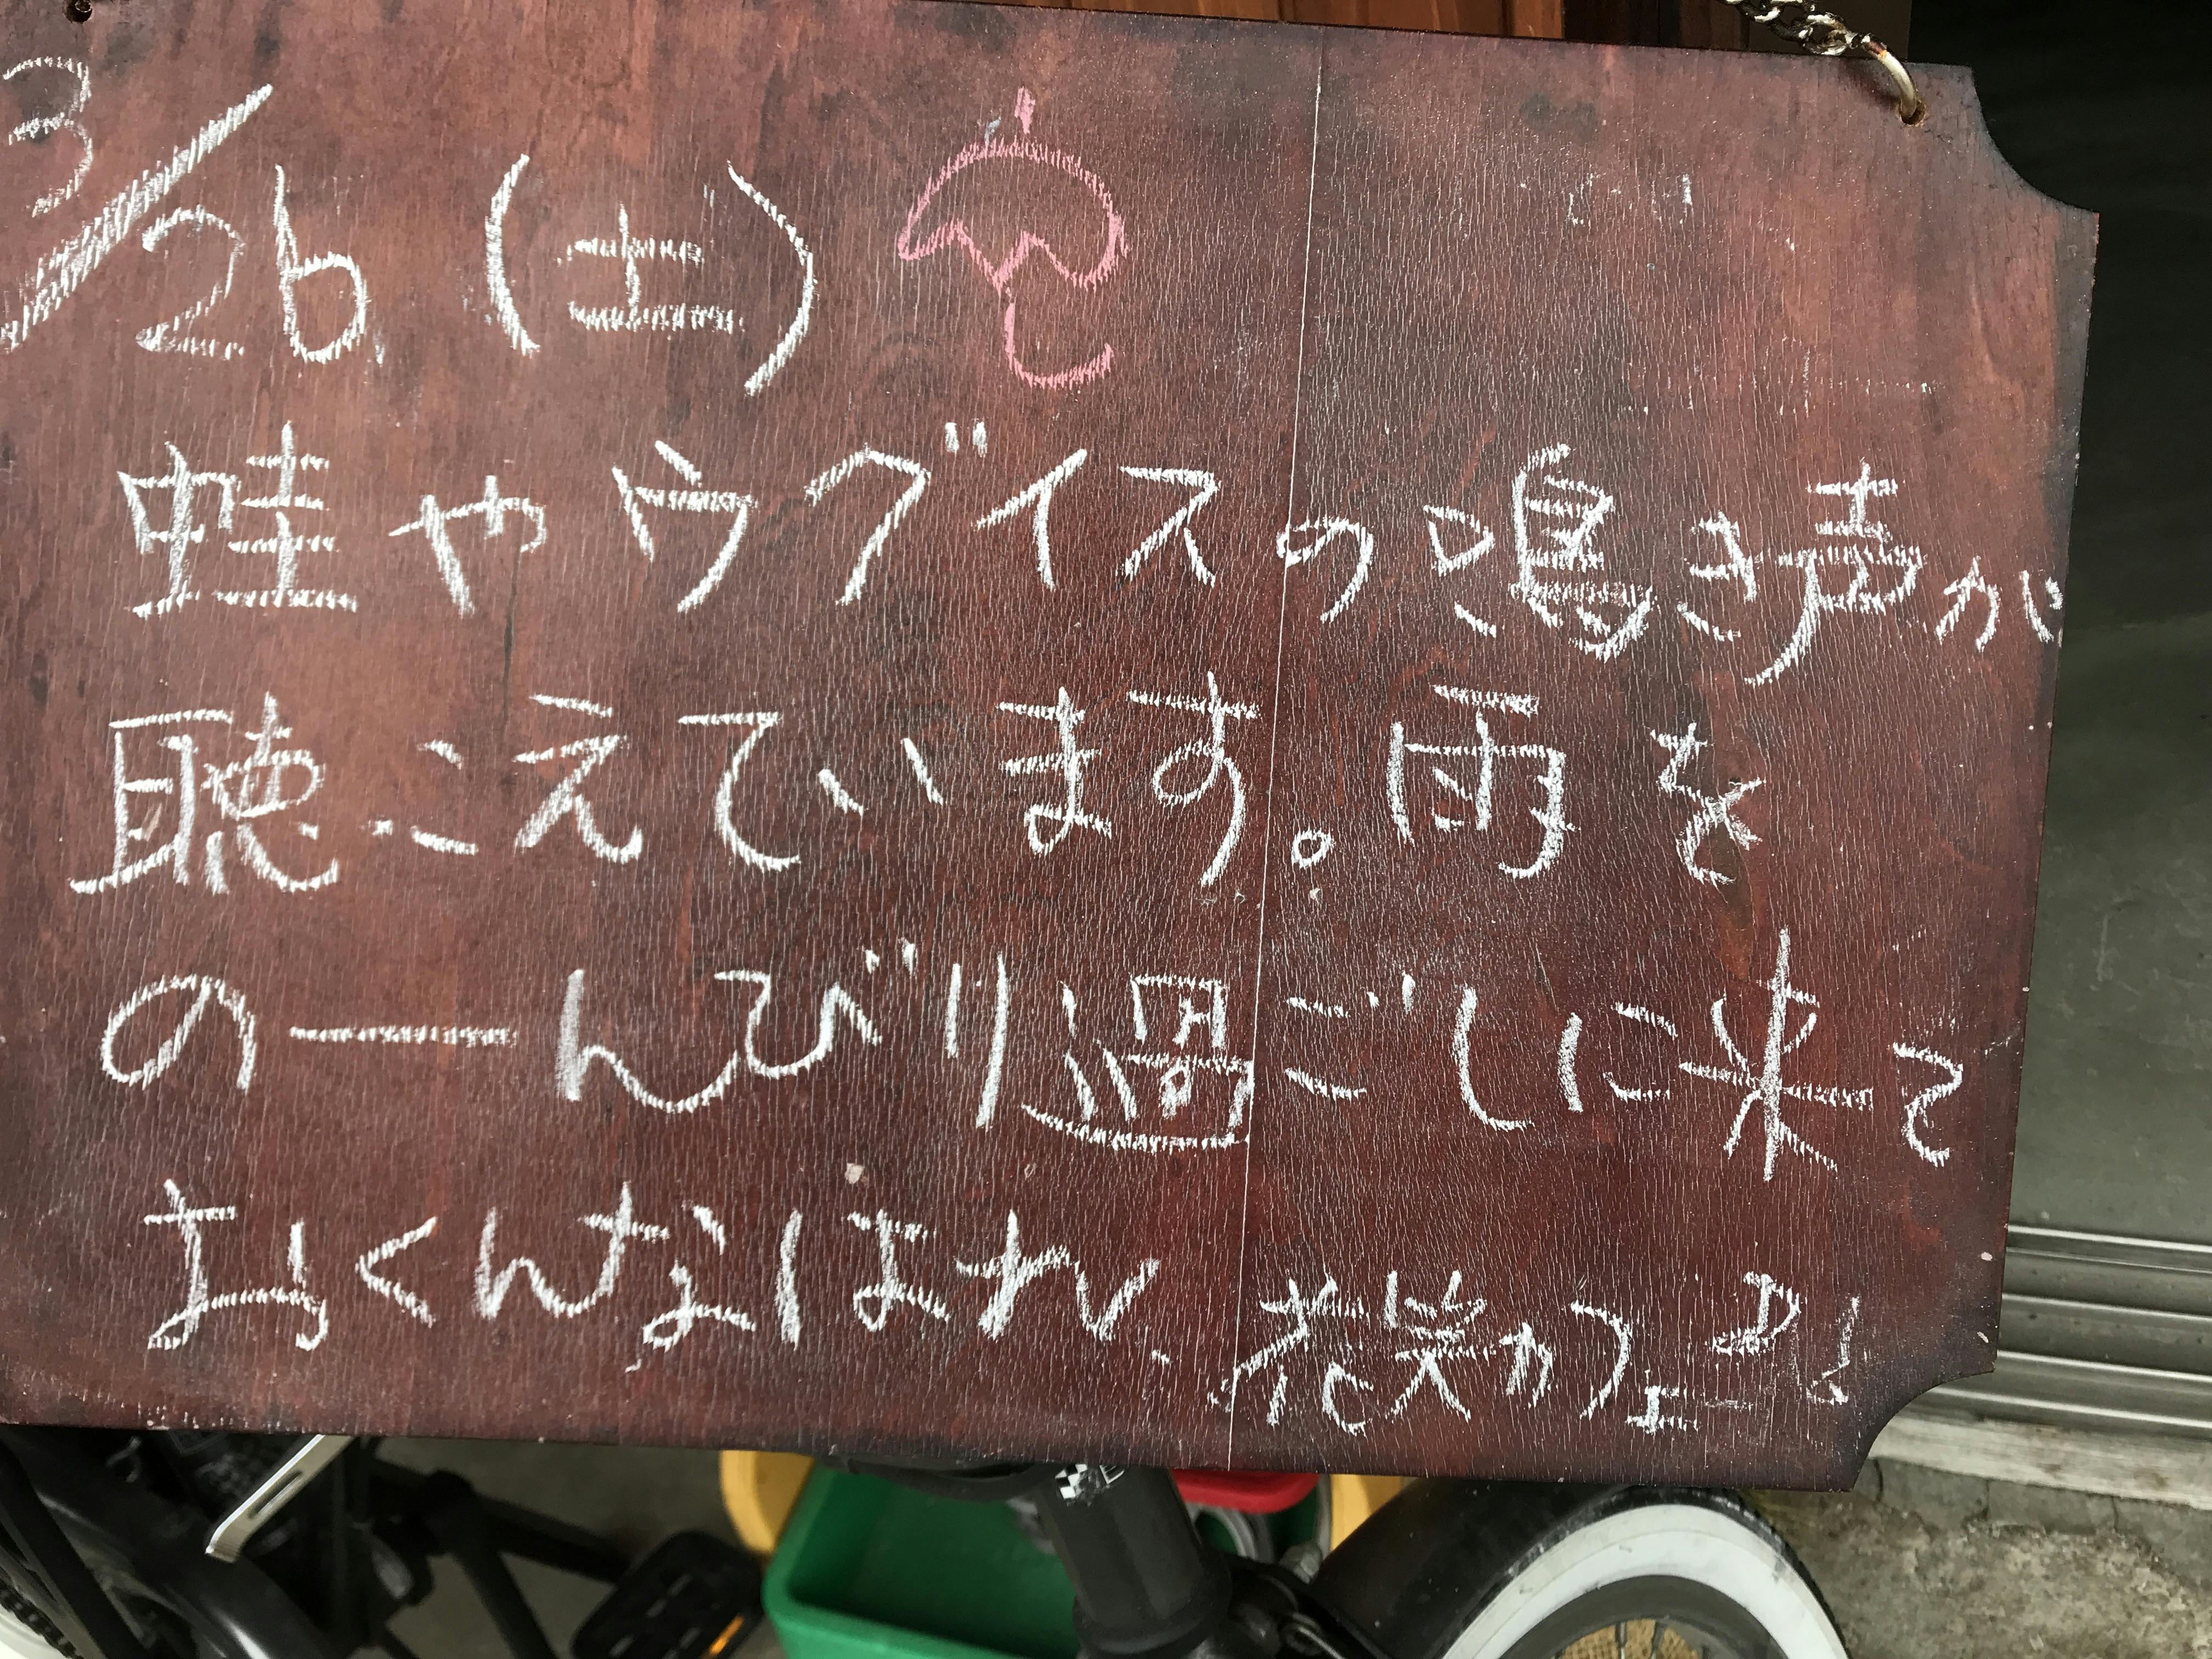 3/26 (土)
蛙やウグイスの鳴き声が
聴こえています。雨を
のーんびり過ごしに来て
おくんなはれ、花笑かよ